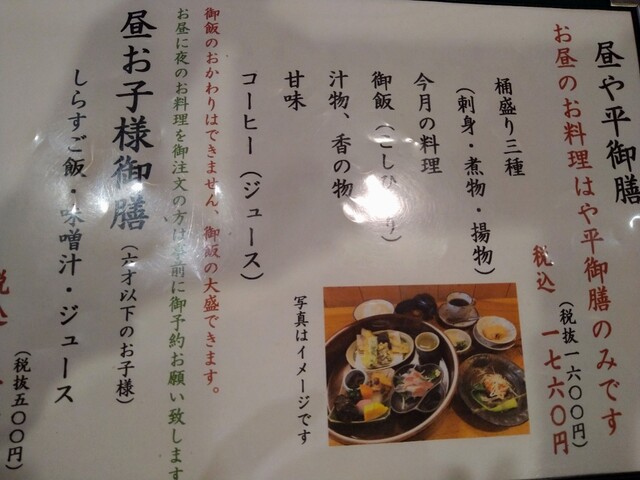 昼や平御膳
お昼のお料理はや平御膳のみです
(税抜一六〇〇円)
税込 一七六〇円
桶盛り三種
(刺身・煮物・揚物)
今月の料理
御飯
汁物、香の物
甘味
コーヒー(ジュース)
写真はイメージです
御飯のおかわりはできません、御飯の大盛できます。
お昼に夜のお料理を御注文の方は事前に御予約お願い致します
昼お子様御膳(六才以下のお子様)
しらすご飯・味噌汁・ジュース
(税抜五〇〇円)
税込